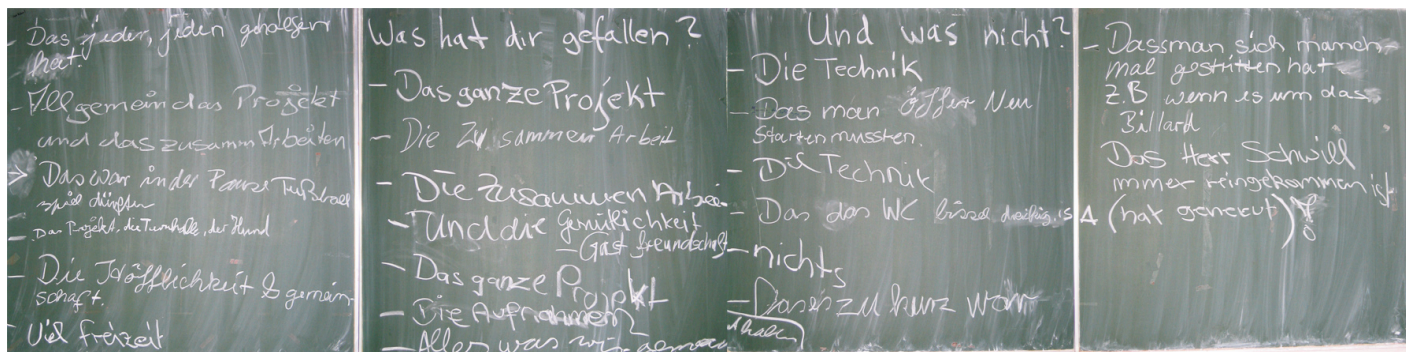 - Das jeder, jeden geholefen
hat.
- Allgemein das Projekt
und das zusamm Arbeiten
> Das war in der Pause Fußball
spiel dürften
- Das Projekt, die Turnhalle, der Hund
- Die Höfflichkeit & gemein-
schaft.
- Viel freizeit
Was hat dir gefallen?
- Das ganze Projekt
- Die Zusammen Arbeit
- Die Zusammen Arbei
- Und die Gemütlichkeit
- Gastfreundschaft
- Das ganze Projekt
- Die Aufnahmen
- Alles was wir
Und was nicht?
- Die Technik
- Das man öffter Neu
Starten mussten.
- Die Technik
- Das das WC bissel dreckig is
- nichts
- Das es zu kurz war
- Dassman sich manch
mal gestritten hat
Z.B wenn es um das
Billard
Das Herr Schwill
immer reingekommen ist
(hat genervt)